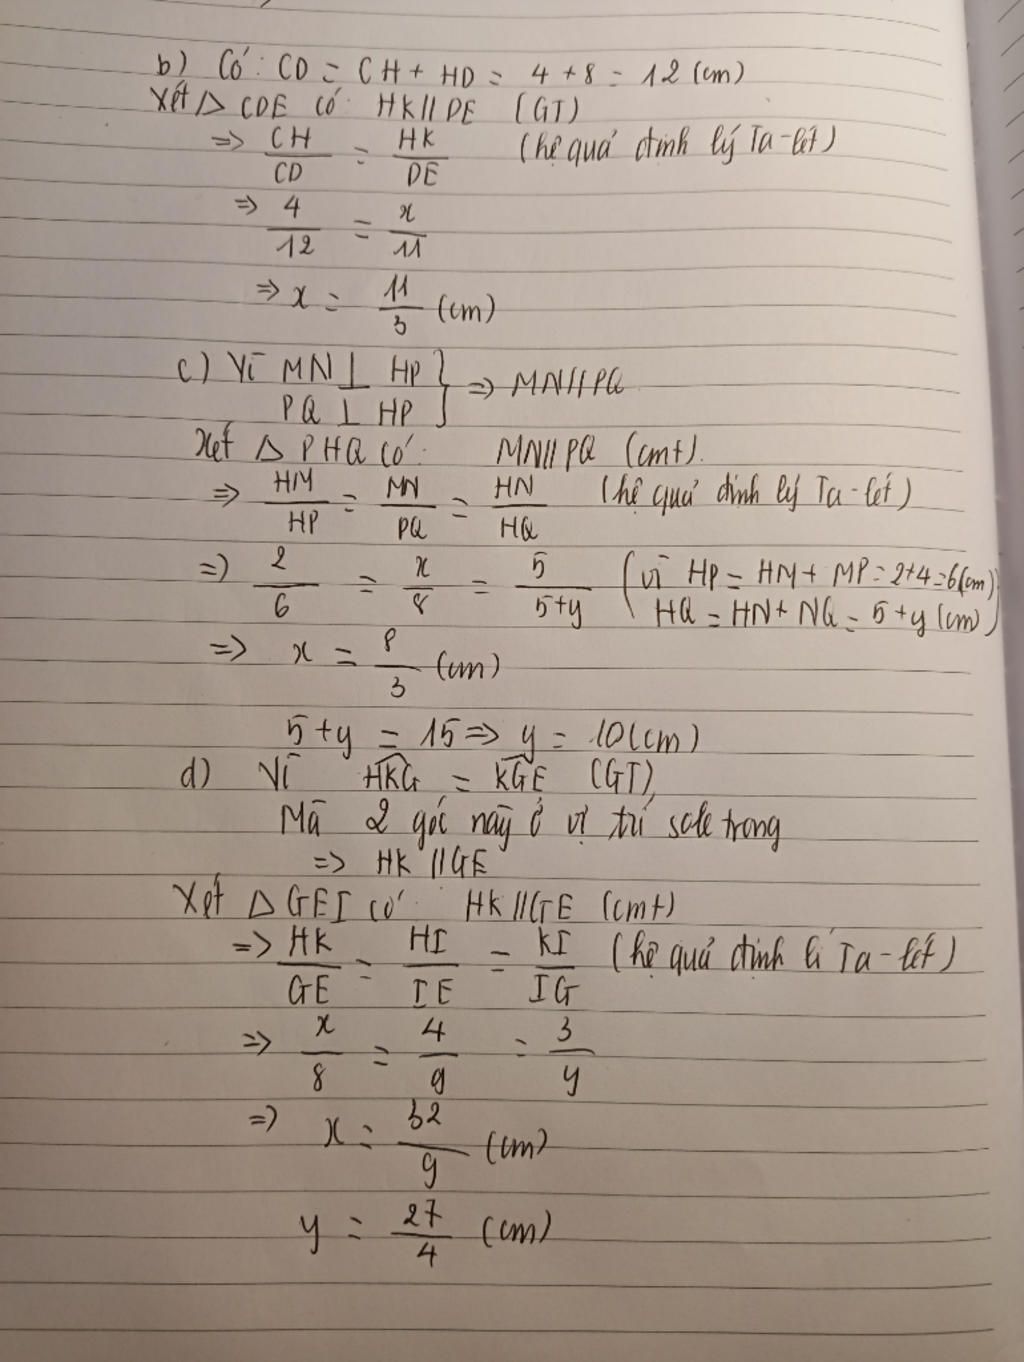 b) Có: CD = CH + HD = 4 + 8 = 12 (cm)
Xét Δ CDE có: HK // DE (GT)
=> CH/CD = HK/DE (hệ quả định lý Ta-lét)
=> 4/12 = x/11
=> x = 11/3 (cm)
c) Vì MN ⊥ HP } => MN // PQ
PQ ⊥ HP
Xét Δ PHQ có: MN // PQ (cmt).
=> HM/HP = MN/PQ = HN/HQ (hệ quả định lý Ta-lét)
=> 2/6 = x/8 = 5/5+y (vì HP = HM + MP = 2+4 = 6(cm)
HQ = HN + NQ = 5+y (cm))
=> x = 8/3 (cm)
5+y = 15 => y = 10(cm)
d) Vì HKG = KGE (GT),
Mà 2 góc này ở vị trí sole trong
=> HK // GE
Xét Δ GEI có: HK // GE (cmt)
=> HK/GE = HI/IE = KI/IG (hệ quả định lí Ta-lét)
=> x/8 = 4/9 = 3/y
=> x = 32/9 (cm)
y = 27/4 (cm)